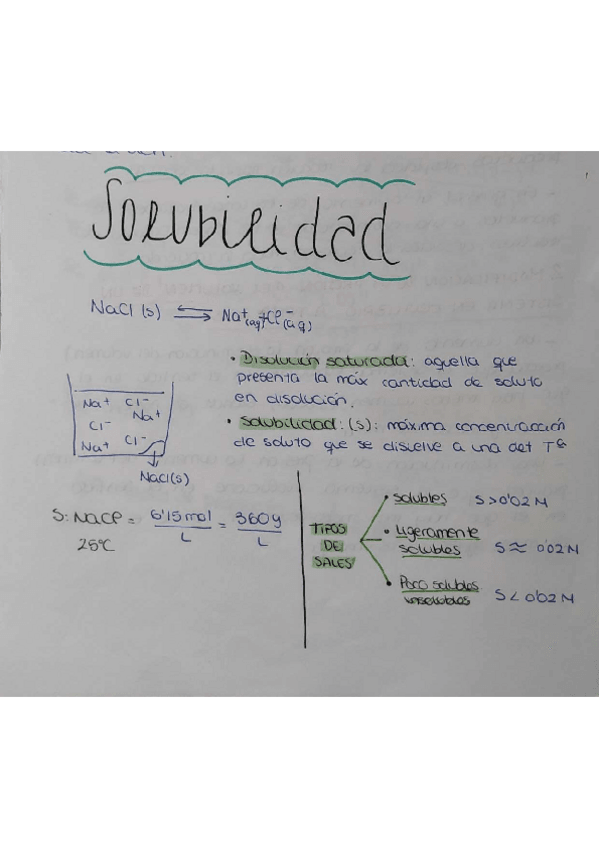 Solubilidad
NaCl (s) ⇌ Na⁺(aq) + Cl⁻(aq)
• Disolución saturada: aquella que
presenta la máx cantidad de soluto
en disolución.
• Solubilidad: (s): máxima concentración
de soluto que se disuelve a una det Tª
Na⁺ Cl⁻
Na⁺
Cl⁻
Na⁺ Cl⁻
NaCl(s)
S: NaCl = 6'15 mol / L = 360 g / L
25ºC
TIPOS
DE
SALES
• Solubles S > 0'02 M
• Ligeramente
solubles S ≈ 0'02 M
• Poco solubles
insolubles S < 0'02 M